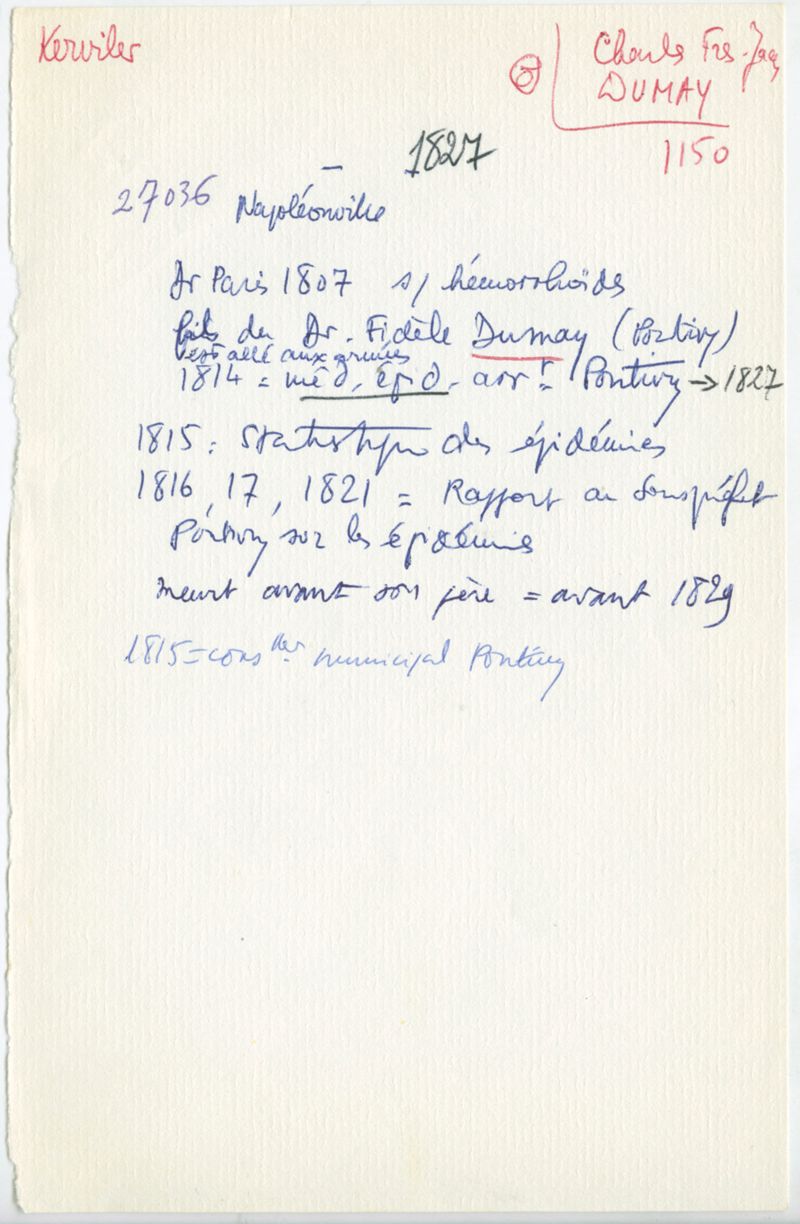 Kerviler
Charles Frs-Jacq
DUMAY
1150
– 1827
27036 Napoléonville
Dr Paris 1807 s/ hémorrhoïdes
fils du Dr. Fidèle Dumay (Pontivy)
est allé aux armées
1814 = méd. épid. arrt Pontivy → 1827
1815 : Statistique des épidémies
1816, 17, 1821 = Rapport au Souspréfet
Pontivy sur les épidémies
meurt avant son père = avant 1829
1815 = conseller municipal Pontivy